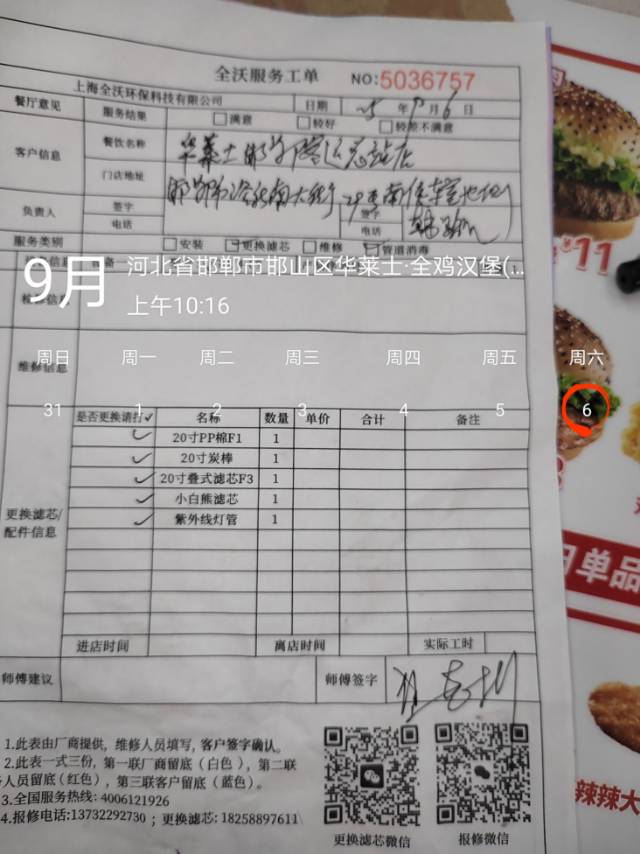 全沃服务工单 NO:5036757
上海全沃环保科技有限公司 日期 25年9月6日
餐厅意见 服务结果 满意 较好 较差不满意
客户信息 餐饮名称 华莱士邯郸客运总站店
门店地址
负责人 签字 签字
电话 电话
服务类别 安装 更换滤芯 维修 管道消毒
9月 河北省邯郸市邯山区华莱士·全鸡汉堡(...
上午10:16
维修信息
周日 周一 周二 周三 周四 周五 周六
31 1 2 3 4 5 6
是否更换请打✓ 名称 数量 单价 合计 备注
更换滤芯/配件信息
✓ 20寸PP棉F1 1
✓ 20寸炭棒 1
✓ 20寸叠式滤芯F3 1
✓ 小白熊滤芯 1
✓ 紫外线灯管 1
进店时间 离店时间 实际工时
师傅建议 师傅签字
1.此表由厂商提供，维修人员填写，客户签字确认。
2.此表一式三份，第一联厂商留底（白色），第二联
人员留底（红色），第三联客户留底（蓝色）。
3.全国服务热线：4006121926
4.报修电话:13732292730；更换滤芯: 18258897611
更换滤芯微信 报修微信
¥11
日单品
辣辣大